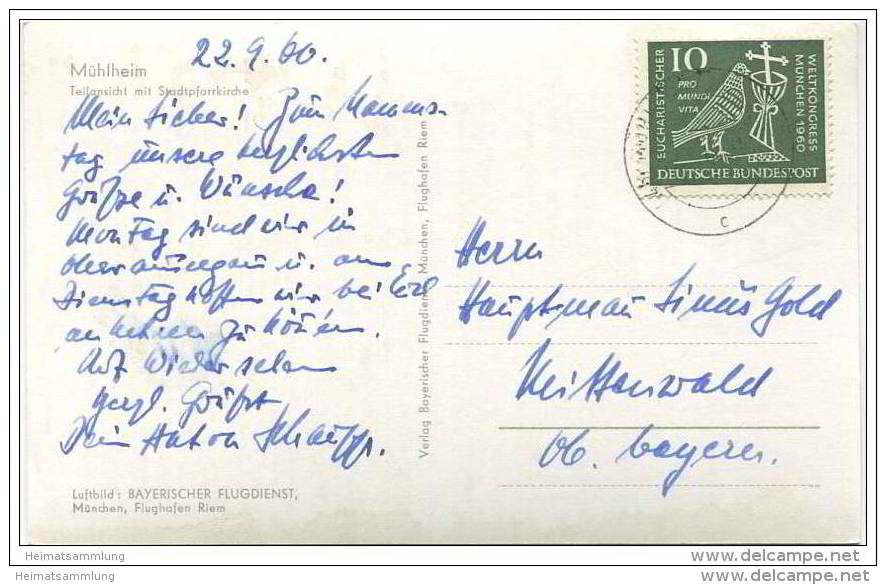 22.9.60.
Mühlheim
Teilansicht mit Stadtpfarrkirche
Mein Lieber! Zum Namens-
tag unsere herzlichsten
Grüße u. Wünsche!
Montag sind wir in
Oberammergau u. am
Dienstag hoffen wir bei Euch
zu können.
Auf Wiedersehen
herzl. Grüße
Dein Anton Schaupp.
Luftbild: BAYERISCHER FLUGDIENST,
München, Flughafen Riem
Verlag Bayerischer Flugdienst München, Flughafen Riem
10
PRO
MUNDI
VITA
EUCHARISTISCHER
WELTKONGRESS
MÜNCHEN 1960
DEUTSCHE BUNDESPOST
c
Herrn
Hauptmann Gold
Mittenwald
Ob. bayern.
Heimatsammlung
Heimatsammlung
delcampe.net
delcampe.net